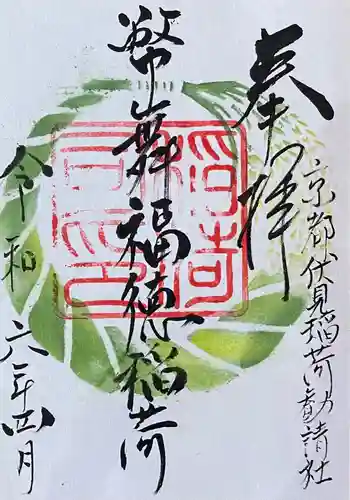 奉拝
京都伏見稲荷勧請社
幣舞福徳稲荷
令和六年四月